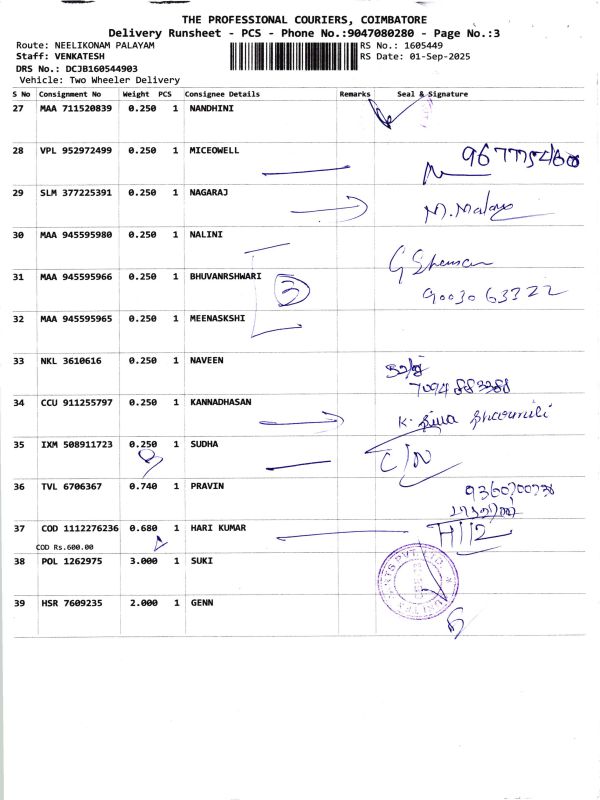 THE PROFESSIONAL COURIERS, COIMBATORE
Delivery Runsheet - PCS - Phone No.:9047080280 - Page No.:3
Route: NEELIKONAM PALAYAM RS No.: 1605449
Staff: VENKATESH RS Date: 01-Sep-2025
DRS No.: DCJB160544903
Vehicle: Two Wheeler Delivery
S No Consignment No Weight PCS Consignee Details Remarks Seal & Signature
27 MAA 711520839 0.250 1 NANDHINI
28 VPL 952972499 0.250 1 MICEOWELL
29 SLM 377225391 0.250 1 NAGARAJ
30 MAA 945595980 0.250 1 NALINI
31 MAA 945595966 0.250 1 BHUVANRSHWARI 3
9003063322
32 MAA 945595965 0.250 1 MEENASKSHI
33 NKL 3610616 0.250 1 NAVEEN
34 CCU 911255797 0.250 1 KANNADHASAN
35 IXM 508911723 0.250 1 SUDHA C/N
36 TVL 6706367 0.740 1 PRAVIN
37 COD 1112276236 0.680 1 HARI KUMAR H112
COD Rs.600.00
38 POL 1262975 3.000 1 SUKI
39 HSR 7609235 2.000 1 GENN